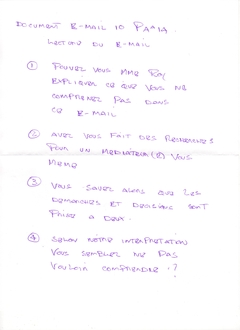 DOCUMENT E-MAIL 10 PAMA.
LECTURE DU E-MAIL
① POUVEZ VOUS MME ROY
EXPLIQUER CE QUE VOUS NE
COMPRENEZ PAS DANS
CE E-MAIL
② AVEZ VOUS FAIT DES RECHERCHES
POUR UN MEDIATEUR(E) VOUS
MEME
③ VOUS SAVEZ ALORS QUE LES
DEMARCHES ET DECISIONS SONT
FAIRE A DEUX.
④ SELON NOTRE INTERPRETATION
VOUS SEMBLEZ NE PAS
VOULOIR COMPRENDRE.?